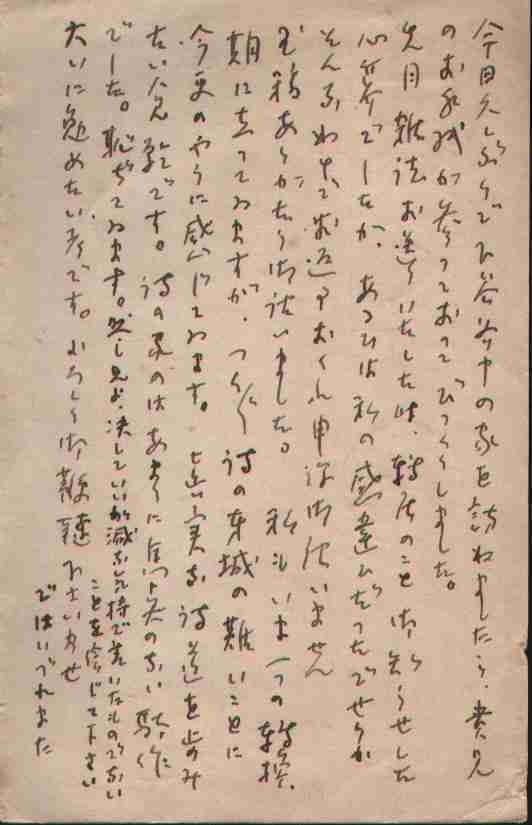 今日久しぶりで下谷谷中の家を訪ねましたら、貴兄
のお手紙が参っておってびっくりしました。
先月雑誌お送りいたした時、転居のこと御知らせした
心算でしたが、あるひは私の感違ひだったでせうか
そんなわけで御返事おくれ申訳御座いません
玉稿ありがたう御座いました。私もいま一つの転換
期に立ってゐますが、つくづく詩の道の難いことに
今更のやうに感じてゐます。もっと真実な詩道を歩み
たい念願です。詩の方のはあまりに気の入らない駄作
でした。恥ぢてゐます。然し兄よ、決していい加減な気持で書いたものでない
ことを信じて下さい
大いに勉めたい考です。よろしく御鞭撻下さいませ
ではいづれまた